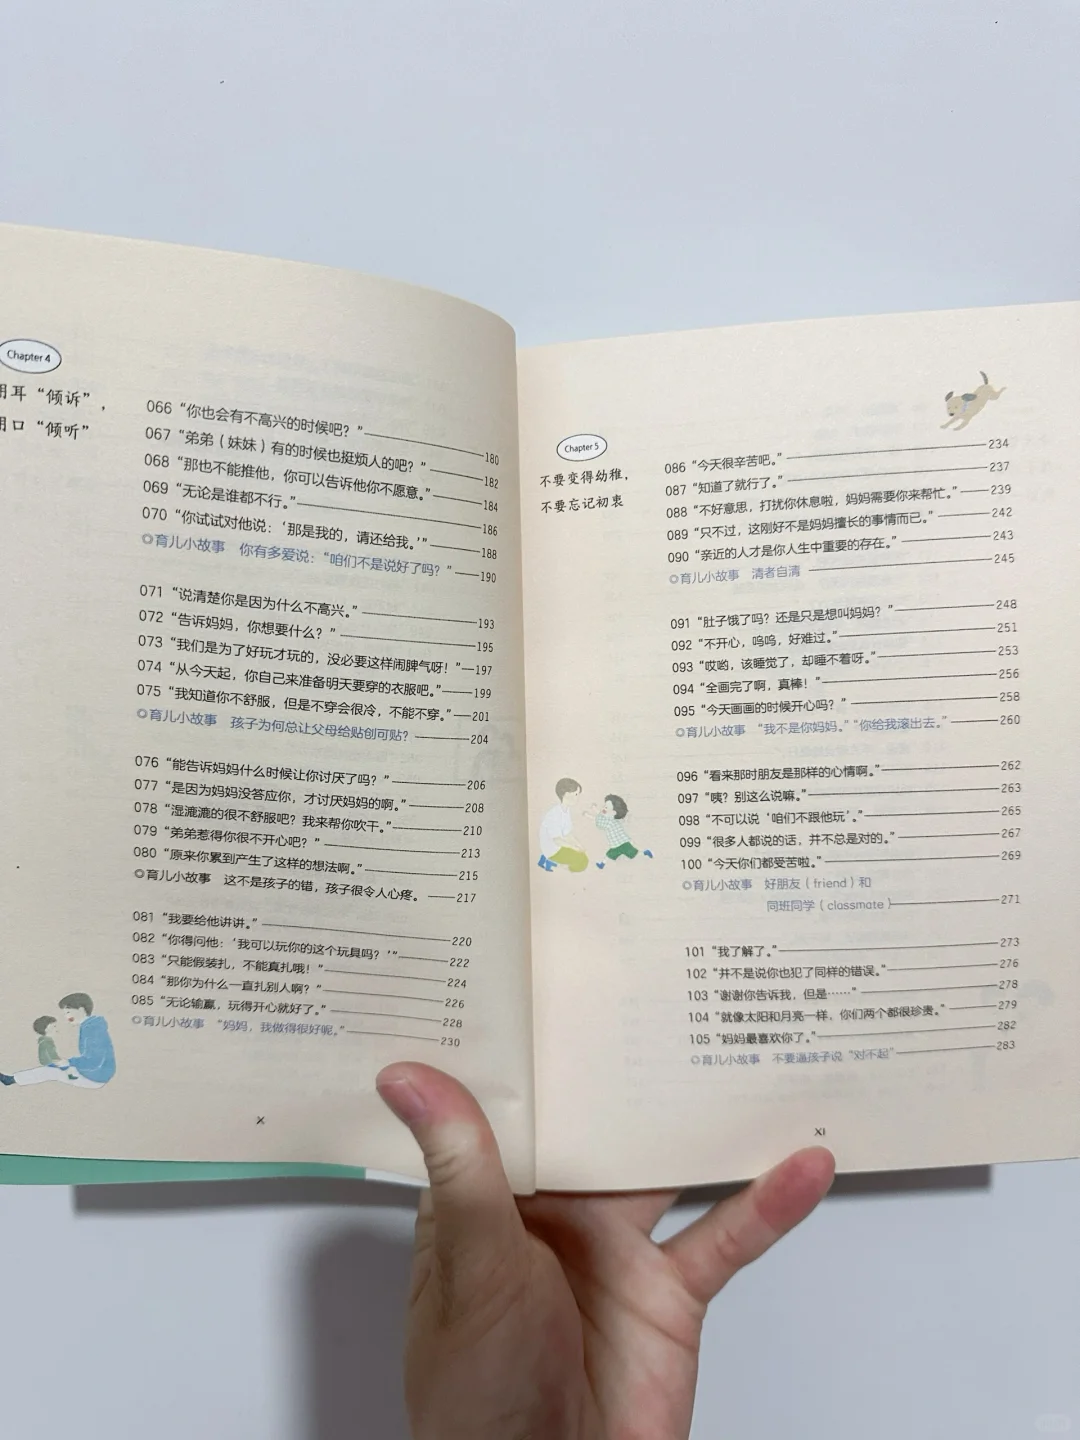 Chapter 4
用耳“倾诉”，
用口“倾听”
066 “你也会有不高兴的时候吧？”——180
067 “弟弟（妹妹）有的时候也挺烦人的吧？”——182
068 “那也不能推他，你可以告诉他你不愿意。”——184
069 “无论是谁都不行。”——186
070 “你试试对他说：‘那是我的，请还给我。’”——188
◎育儿小故事 你有多爱说：“咱们不是说好了吗？”——190
071 “说清楚你是因为什么不高兴。”——193
072 “告诉妈妈，你想要什么？”——195
073 “我们是为了好玩才玩的，没必要这样闹脾气呀！”—197
074 “从今天起，你自己来准备明天要穿的衣服吧。”——199
075 “我知道你不舒服，但是不穿会很冷，不能不穿。”—201
◎育儿小故事 孩子为何总让父母给贴创可贴？——204
076 “能告诉妈妈什么时候让你讨厌了吗？”——206
077 “是因为妈妈没答应你，才讨厌妈妈的啊。”——208
078 “湿漉漉的很不舒服吧？我来帮你吹干。”——210
079 “弟弟惹得你很不开心吧？”——213
080 “原来你累到产生了这样的想法啊。”——215
◎育儿小故事 这不是孩子的错，孩子很令人心疼。——217
081 “我要给他讲讲。”——220
082 “你得问他：‘我可以玩你的这个玩具吗？’”——222
083 “只能假装扎，不能真扎哦！”——224
084 “那你为什么一直扎别人啊？”——226
085 “无论输赢，玩得开心就好了。”——228
◎育儿小故事 “妈妈，我做得很好呢。”——230
X
Chapter 5
不要变得幼稚，
不要忘记初衷
086 “今天很辛苦吧。”——234
087 “知道了就行了。”——237
088 “不好意思，打扰你休息啦，妈妈需要你来帮忙。”—239
089 “只不过，这刚好不是妈妈擅长的事情而已。”——242
090 “亲近的人才是你人生中重要的存在。”——243
◎育儿小故事 清者自清——245
091 “肚子饿了吗？还是只是想叫妈妈？”——248
092 “不开心，呜呜，好难过。”——251
093 “哎哟，该睡觉了，却睡不着呀。”——253
094 “全画完了啊，真棒！”——256
095 “今天画画的时候开心吗？”——258
◎育儿小故事 “我不是你妈妈。”“你给我滚出去。”——260
096 “看来那时朋友是那样的心情啊。”——262
097 “咦？别这么说嘛。”——263
098 “不可以说‘咱们不跟他玩’。”——265
099 “很多人都说的话，并不总是对的。”——267
100 “今天你们都受苦啦。”——269
◎育儿小故事 好朋友（friend）和
同班同学（classmate）——271
101 “我了解了。”——273
102 “并不是说你也犯了同样的错误。”——276
103 “谢谢你告诉我，但是……”——278
104 “就像太阳和月亮一样，你们两个都很珍贵。”——279
105 “妈妈最喜欢你了。”——282
◎育儿小故事 不要逼孩子说“对不起”——283
XI